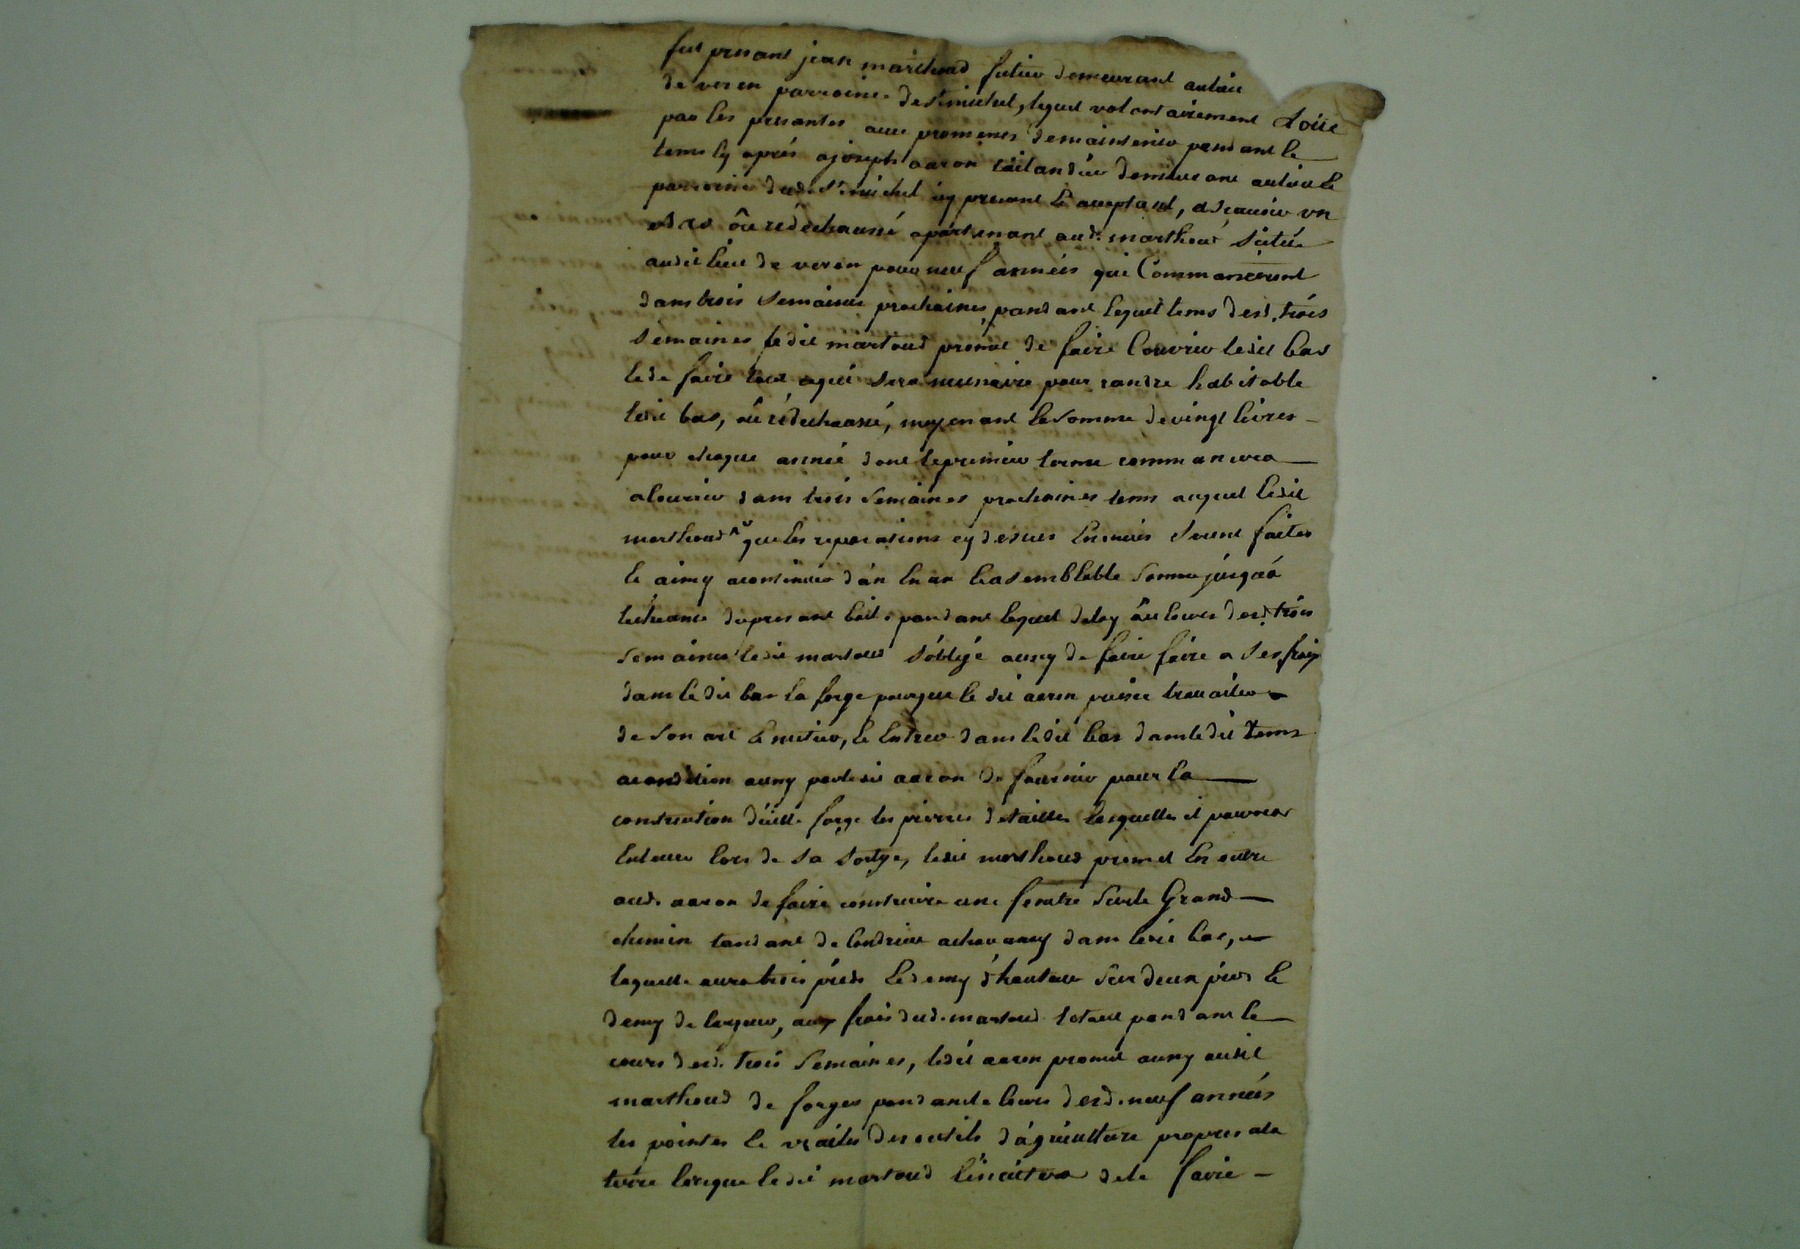 fut presant jean marthoud futier demeurant au lieu
de veren parroisse de st michel, lequel volontairement Loüe
par les presantes avec promesses de maintenir pendant le
tems cy aprés a joseph aaron taillandier demeurant au lieu &
parroisse dud. st michel icy present & acceptant, a scavoir un
bas ôu rédechaussé apartenant aud. marthoud sitúé
audit lieu de veren pour neuf années qui Commanceront
dans trois semaines prochaines, pandant lequel tems desd. trois
semaines ledit martoud promet de faire Couvrir ledit bas
& de faire tout ce qui sera necessaire pour randre habitable
ledit bas, ôu rédechaussé, moyenant la somme de vingt livres
pour chaque année dont le premier terme commancera
a Courrir dans trois semaines prochaines tems auquel ledit
marthoud que les reparations cy dessus Enoncés seront faites
& ainsy acontinuer d'an En an la semblable somme jusqu'à
Lecheance du presant bail, pandant lequel delay ôu cours desd. trois
semaines ledit martoud s'oblige aussy de faire faire a ses frais
dans ledit bas la forge pour que le dit aaron puisse travailler
de son art & metier, & Entrer dans ledit bas dans ledit tems
acondition aussy par ledit aaron de fournir pour la
construction d'icelle forge les pierres de tailles lesquelles il pourra
Enlever lors de sa sortye, ledit marthoud promet En outre
aud. aaron de faire construire une fenetre sur le Grand
chemin tandant de Condrieu a chavanay dans ledit bas,
laquelle aura trois pieds & demy d'hauteur sur deux pieds &
demy de largeur, aux frais dud. martoud le tout pandant le
cours desd. trois semaines, ledit aaron promet aussy audit
marthoud de forger pandant le cours desd. neuf années
les pointes & des outils d'agriculture propres a la
terre lorsque le dit martoud de le faire